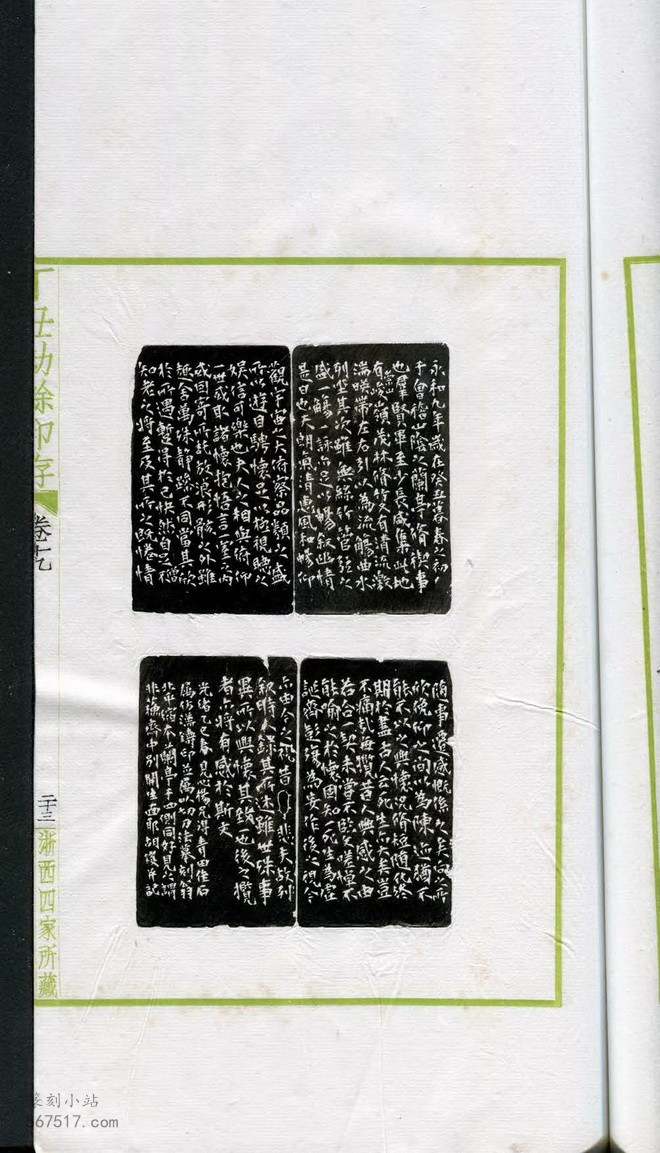 永和九年歲在癸丑暮春之初
于會稽山陰之蘭亭脩稧事
也羣賢畢至少長咸集此地
有崇山峻領茂林脩竹又有清流激
湍暎帶左右引以為流觴曲水
列坐其次雖無絲竹管弦之
盛一觴一詠亦足以暢叙幽情
是日也天朗氣清惠風和暢仰
觀宇宙之大俯察品類之盛
所以遊目騁懷足以極視聽之
娛信可樂也夫人之相與俯仰
一世或取諸懷抱悟言一室之內
或因寄所託放浪形骸之外雖
趣舍萬殊靜躁不同當其欣
於所遇暫得於己快然自足不
知老之將至及其所之既惓情
隨事遷感慨係之矣向之所
欣俛仰之間以為陳迹猶不
能不以之興懷況脩短隨化終
期於盡古人云死生亦大矣豈
不痛哉每攬昔人興感之由
若合一契未嘗不臨文嗟悼不
能喻之於懷固知一死生為虛
誕齊彭殤為妄作後之視今
亦由今之視昔 悲夫故列
叙時人錄其所述雖世殊事
異所以興懷其致一也後之攬
者亦將有感於斯文
光緒乙巳春見
丁丑劫餘印存
卷七
二十三
浙西四家所藏
篆刻小站
67517.com